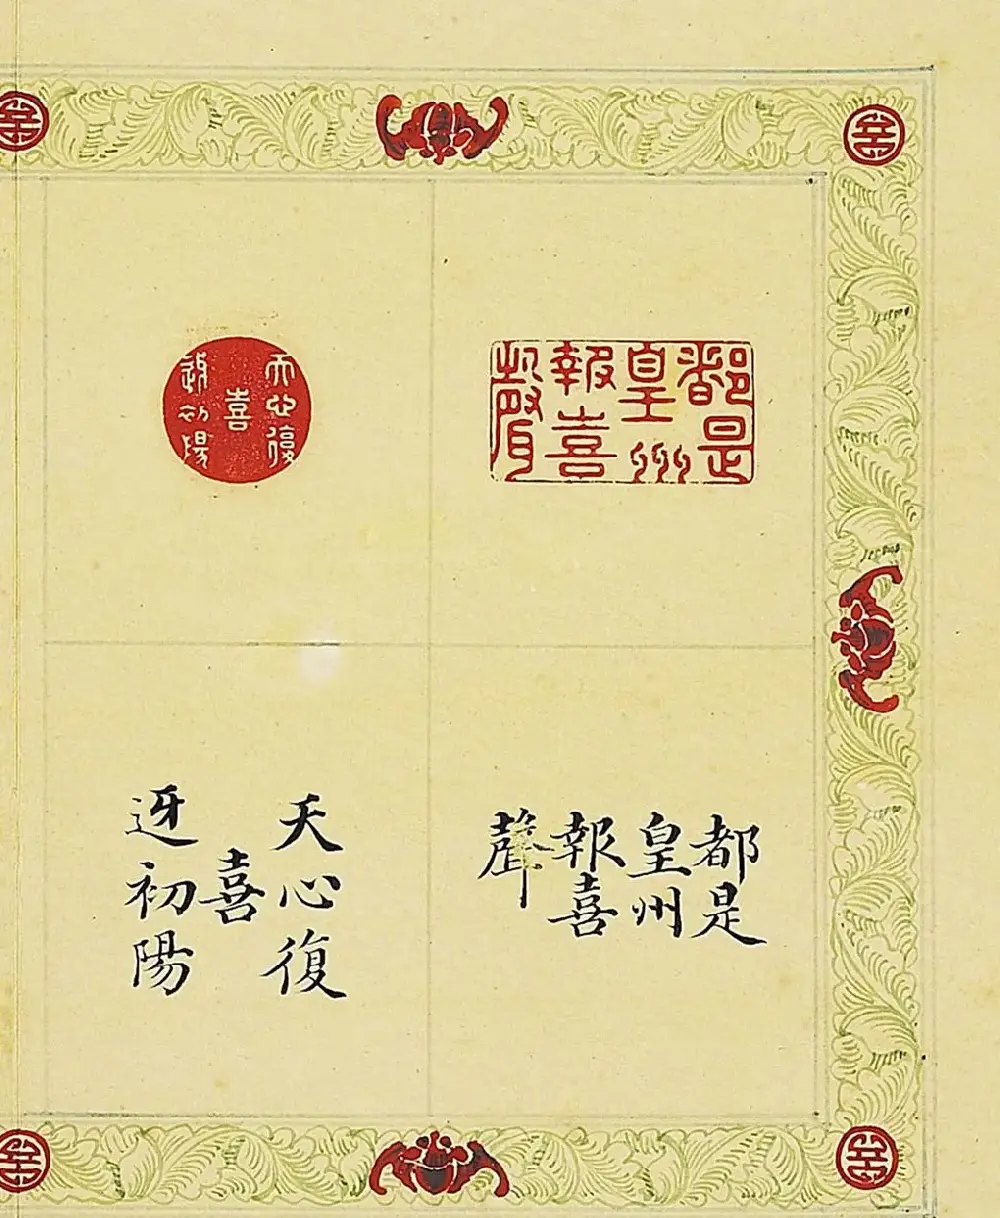 都是
皇州
報喜
聲
天心復
喜
迓初陽
都是
皇州
報喜
聲
天心復
喜
迓初陽